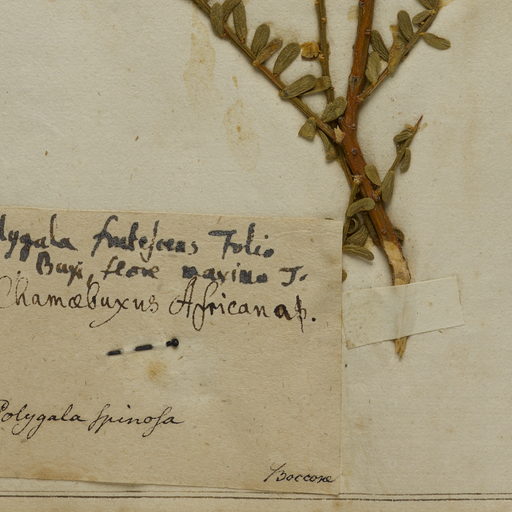 lygala frutescens Folio
Buxi, flore maximo T.
Chamæbuxus African ap.
Polygala spinosa
Boccone